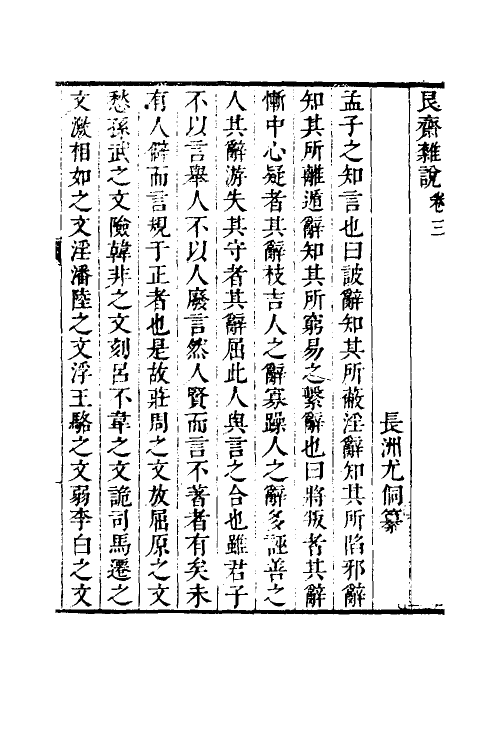 艮齋雜說卷三
長洲尤侗纂
孟子之知言也曰詖辭知其所蔽淫辭知其所陷邪辭
知其所離遁辭知其所窮易之繫辭也曰將叛者其辭
慚中心疑者其辭枝吉人之辭寡躁人之辭多誣善之
人其辭游失其守者其辭屈此人與言之合也雖君子
不以言舉人不以人廢言然人賢而言不著者有矣未
有人僻而言規于正者也是故莊周之文放屈原之文
愁孫武之文險韓非之文刻呂不韋之文詭司馬遷之
文激相如之文淫潘陸之文浮王駱之文弱李白之文